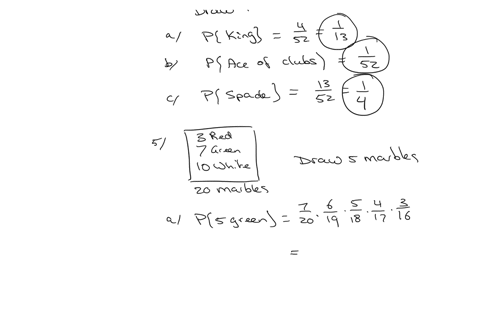 Draw
a/ P{King} = 4/52 = 1/13
b/ P(Ace of clubs) = 1/52
c/ P(Spade) = 13/52 = 1/4
5/ 3 Red
7 Green
10 White
20 marbles
Draw 5 marbles
a/ P(5 green) = 7/20 · 6/19 · 5/18 · 4/17 · 3/16
=